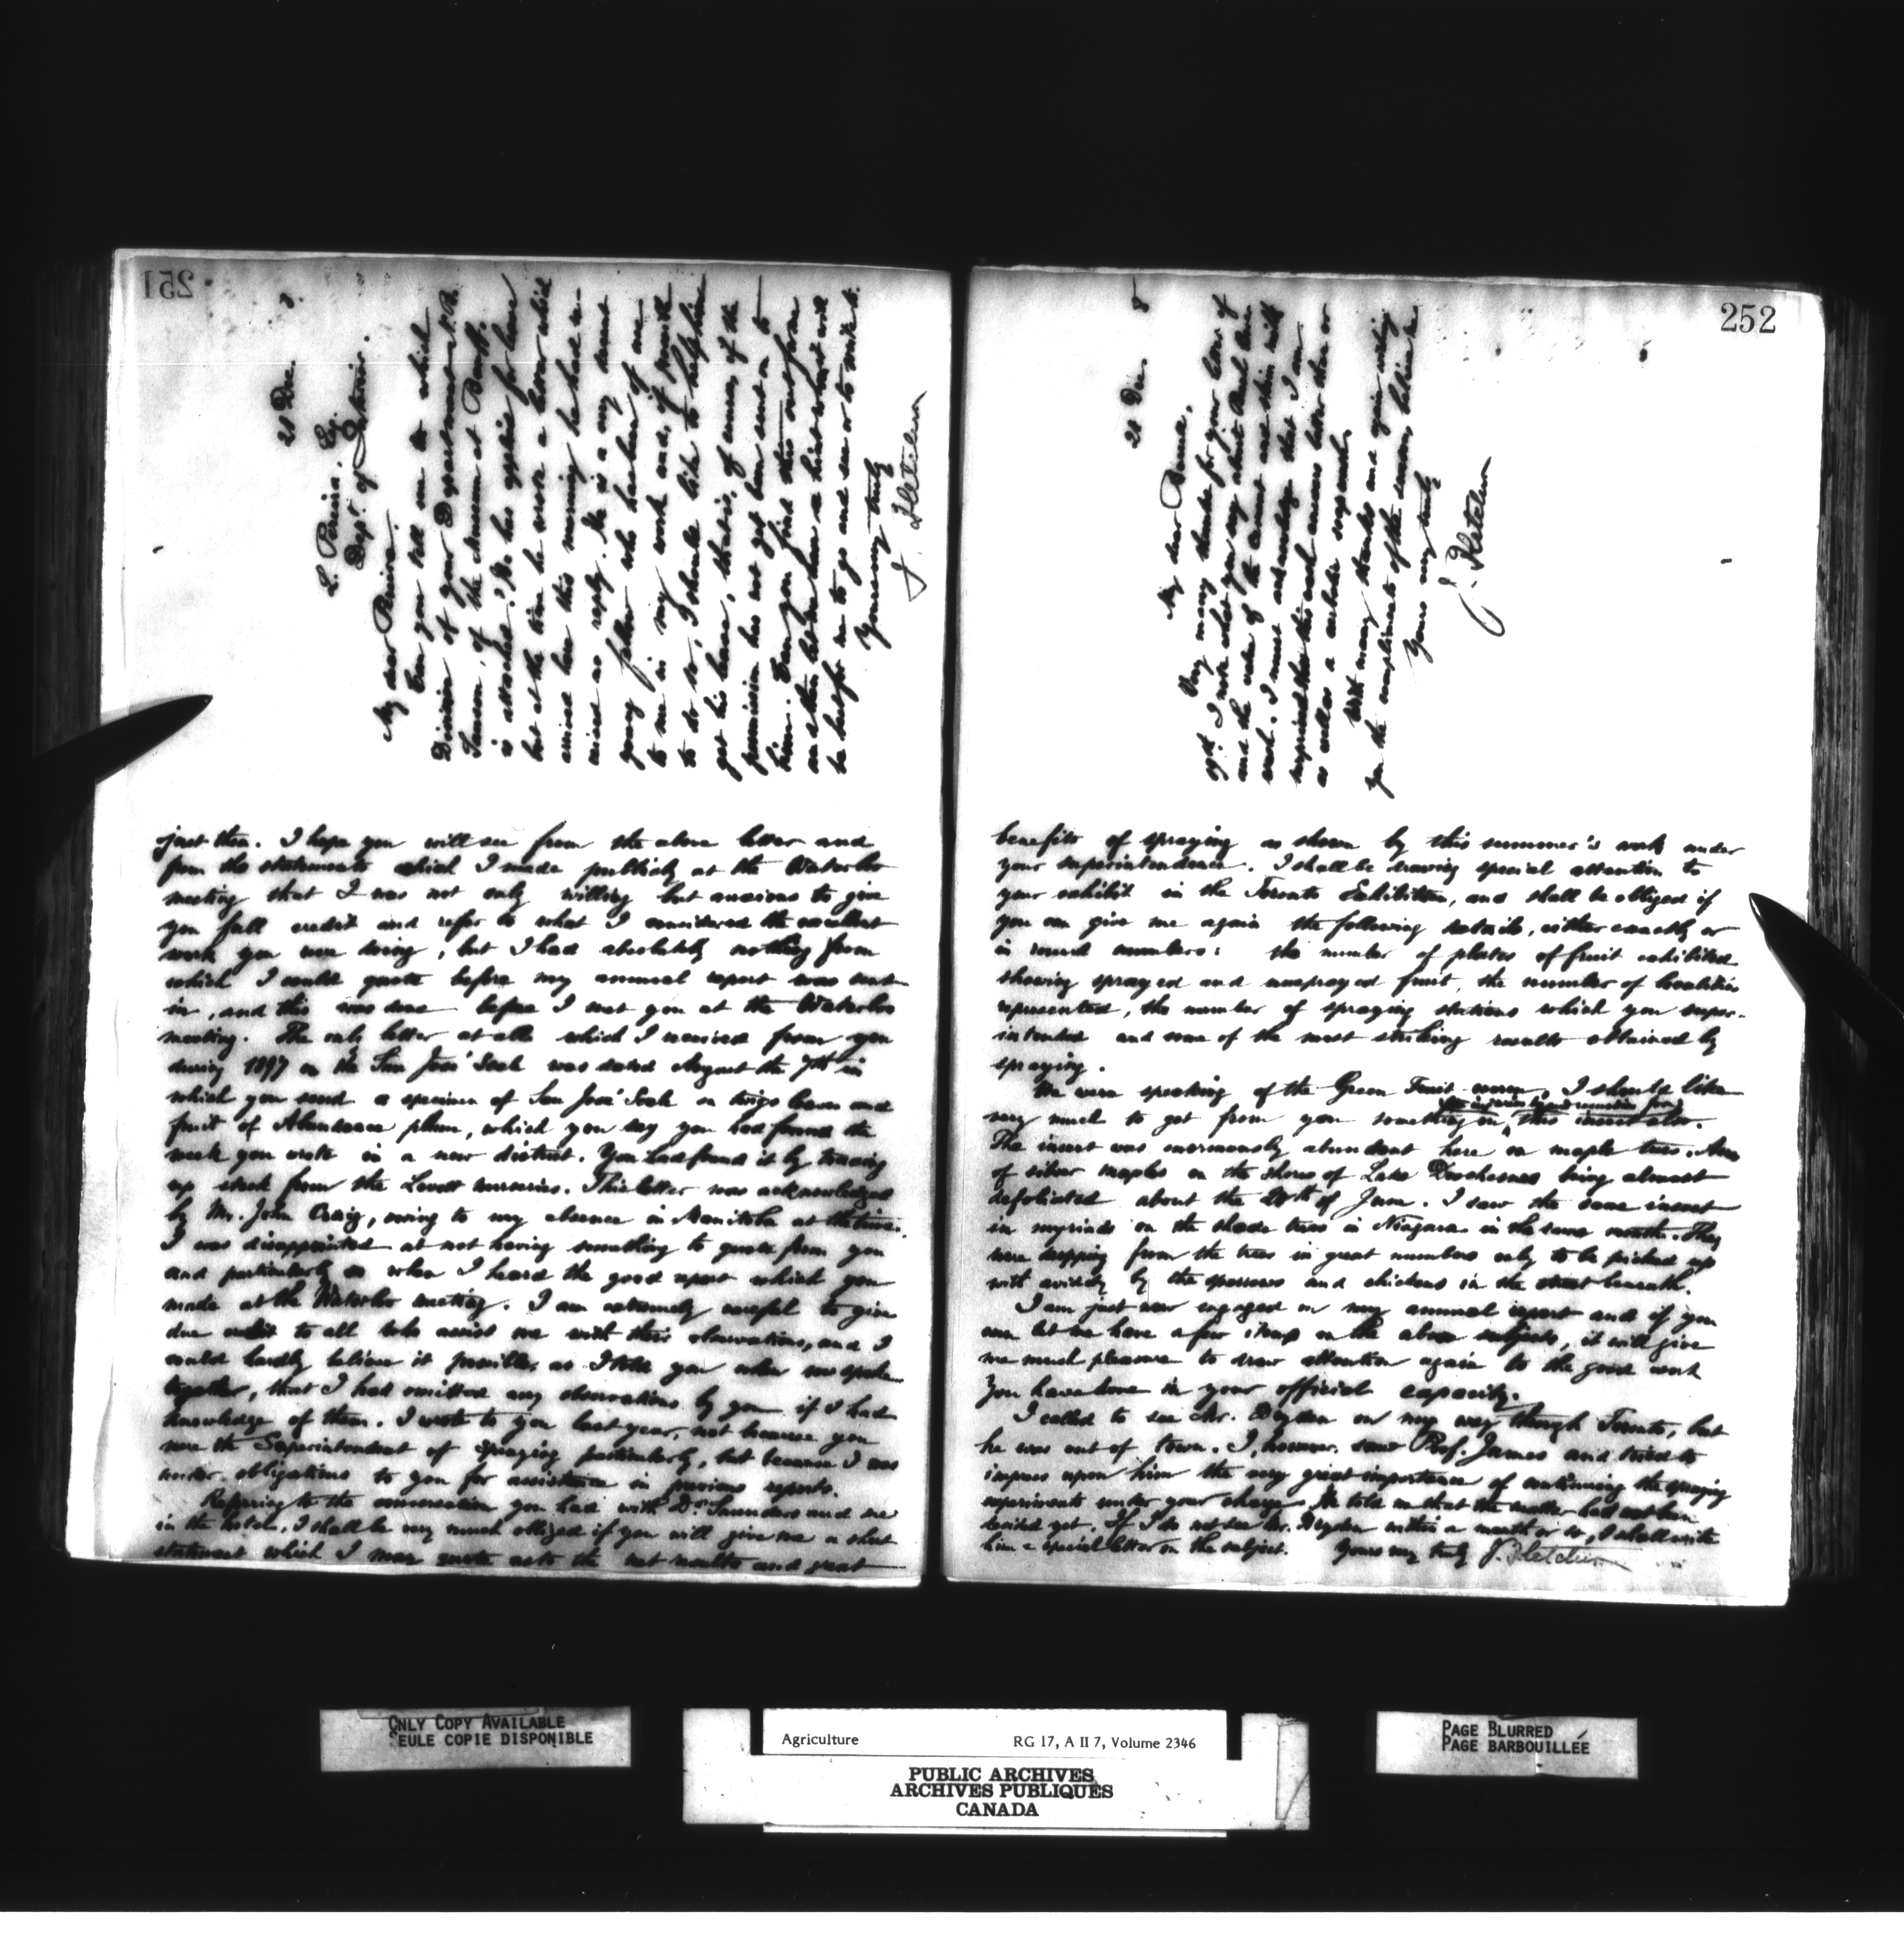 251
21 Dec. 8.
L. Pereira. Esq.
Dept. of Interior.
My dear Pereira.
Can you tell me to which
Division of your Department Mr. R.
of the Museum at Banff.
is attached. He has applied for leave
but at the time he wrote a letter which
arrived here this morning he had re-
ceived no reply. He is a very decent
young fellow who has been of use
to me in my work and, if possible
to do so, I should like to help him
get his leave, that is, of course, if the
permission has not yet been sent to
him. Can you find this out for me
and then let me have a hint what will
be best for me to go and see or to write to.
Yours very truly
J. Fletcher
just then. I hope you will see from the above letter and
from the statements which I made publicly at the Waterloo
meeting that I was not only willing but anxious to give
you full credit and refer to what I considered the excellent
work you were doing, but I had absolutely nothing from
which I could quote before my annual report was sent
in, and this was done before I met you at the Waterloo
meeting. The only letter at all which I received from you
during 1897 on the San José Scale was dated August the 7th in
which you send a specimen of San José Scale on twigs leaves and
fruit of Abundance plum, which you say you had found the
week you wrote in a new district. You had found it by tracing
up stock from the Lovett nurseries. This letter was acknowledged
by Mr. John Craig, owing to my absence in Manitoba at the time.
I was disappointed at not having something to quote from you
and particularly so when I heard the good report which you
made at the Waterloo meeting. I am extremely careful to give
due credit to all who assist me with their observations, and I
could hardly believe it possible, as I told you when we spoke
together, that I had omitted any observations by you if I had
knowledge of them. I wrote to you last year, not because you
were the Superintendent of Spraying particularly, but because I was
under obligations to you for assistance in previous reports.
Referring to the conversation you had with Dr. Saunders and me
in the hotel, I shall be very much obliged if you will give me a short
statement which I may quote as to the net results and great
252
21 Dec. 8
My dear
Very many thanks for your letter of
I note what you say about
and the
work. I must acknowledge that I am
surprised
as well as a
With many thanks and again wishing
you the compliments of the season, believe me
Yours very truly
J. Fletcher
benefits of spraying as shown by this summer's work under
your superintendence. I shall be drawing special attention to
your exhibit in the Toronto Exhibition, and shall be obliged if
you can give me again the following details, either exactly or
in round numbers: the number of plates of fruit exhibited
showing sprayed and unsprayed fruit, the number of localities
represented, the number of spraying stations which you super-
intended and some of the most striking results obtained by
spraying.
We were speaking of the Green Fruit-worm, I should like
very much to get from you something on this insect also.
The insect was enormously abundant here on maple trees.
of silver maples on the shores of Lake Deschenes being almost
defoliated about the 20th of June. I saw the same insect
in myriads on the shade trees in Niagara in the same month. They
were dropping from the trees in great numbers only to be picked up
with avidity by the sparrows and chickens in the street beneath.
I am just now engaged on my annual report and if you
can let me have a few items on the above subjects, it will give
me much pleasure to draw attention again to the good work
you have done in your official capacity.
I called to see Mr. Dryden on my way through Toronto, but
he was out of town. I, however, saw Prof. James and tried to
impress upon him the very great importance of continuing the spraying
experiments under your charge. He told me that the matter had not been
decided yet. If I do not see Mr. Dryden within a month or so, I shall write
him a special letter on the subject. Yours very truly J. Fletcher
ONLY COPY AVAILABLE
SEULE COPIE DISPONIBLE
Agriculture RG 17, A II 7, Volume 2346
PUBLIC ARCHIVES
ARCHIVES PUBLIQUES
CANADA
PAGE BLURRED
PAGE BARBOUILLÉE